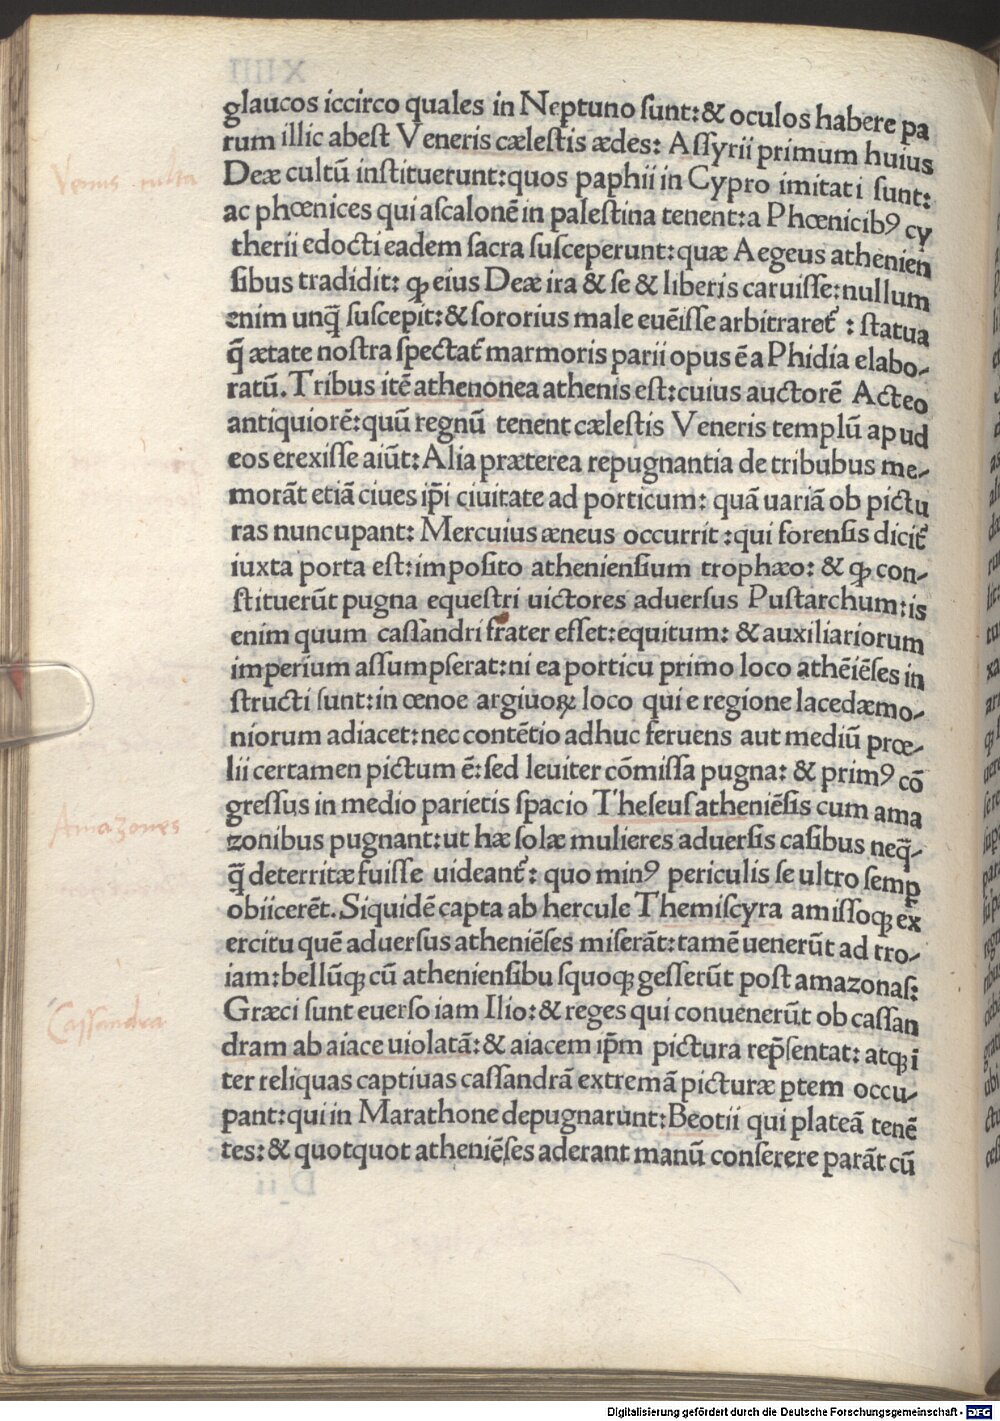 glaucos iccirco quales in Neptuno ſunt:& oculos habere pa
rum illic abeſt Veneris cæleſtis ædes: Aſſyrii primum huius
Deæ cultū inſtituerunt:quos paphii in Cypro imitati ſunt:
ac phœnices qui aſcalonē in paleſtina tenent:a Phœnicibꝰ cy
therii edocti eadem ſacra ſuſceperunt:quæ Aegeus athenien
ſibus tradidit: ꝙ eius Deæ ira & ſe & liberis caruiſſe:nullum
enim unq̄ ſuſcepit:& ſororius male euēiſſe arbitraret᷑ : ſtatua
q̄ ætate noſtra ſpectat᷑ marmoris parii opus ē a Phidia elabo-
ratū. Tribus itē athenonea athenis eſt:cuius auctorē Acteo
antiquiorē:quū regnū tenent cæleſtis Veneris templū apud
eos erexiſſe aiūt:Alia præterea repugnantia de tribubus me-
morāt etiā ciues ip̄i ciuitate ad porticum: quā uariā ob pictu
ras nuncupant: Mercuius æneus occurrit :qui forenſis dicit᷑
iuxta porta eſt:impoſito athenienſium trophæo: & ꝙ con-
ſtituerūt pugna equeſtri uictores aduerſus Puſtarchum:is
enim quum caſſandri frater eſſet:equitum: & auxiliariorum
imperium aſſumpſerat:ni ea porticu primo loco athēiēſes in
ſtructi ſunt:in œnoe argiuoꝝ loco qui e regione lacedæmo-
niorum adiacet:nec contētio adhuc feruens aut mediū prœ-
lii certamen pictum ē:ſed leuiter cōmiſſa pugna: & primꝰ cō
greſſus in medio parietis ſpacio Theſeuſ atheniēſis cum ama
zonibus pugnant:ut hæ ſolæ mulieres aduerſis caſibus neq̄-
q̄ deterritæ fuiſſe uideant᷑: quo minꝰ periculis ſe ultro ſemꝑ
obiicerēt. Siquidē capta ab hercule Themiſcyra amiſſoqꝫ ex̄
ercitu quē aduerſus atheniēſes miſerāt:tamē uenerūt ad tro-
iam:bellūqꝫ cū athenienſibu ſquoqꝫ geſſerūt poſt amazonaſ:
Græci ſunt euerſo iam Ilio:& reges qui conuenerūt ob caſſan
dram ab aiace uiolatā:& aiacem ip̄m pictura rep̄ſentat: atqꝫ ī
ter reliquas captiuas caſſandrā extremā picturæ ꝑtem occu-
pant:qui in Marathone depugnarunt:Beotii qui plateā tenē
tes:& quotquot atheniēſes aderant manū conſerere parāt cū
Venus culta
Amazones
Caſſandra
Digitalisierung gefördert durch die Deutsche Forschungsgemeinschaft - DFG